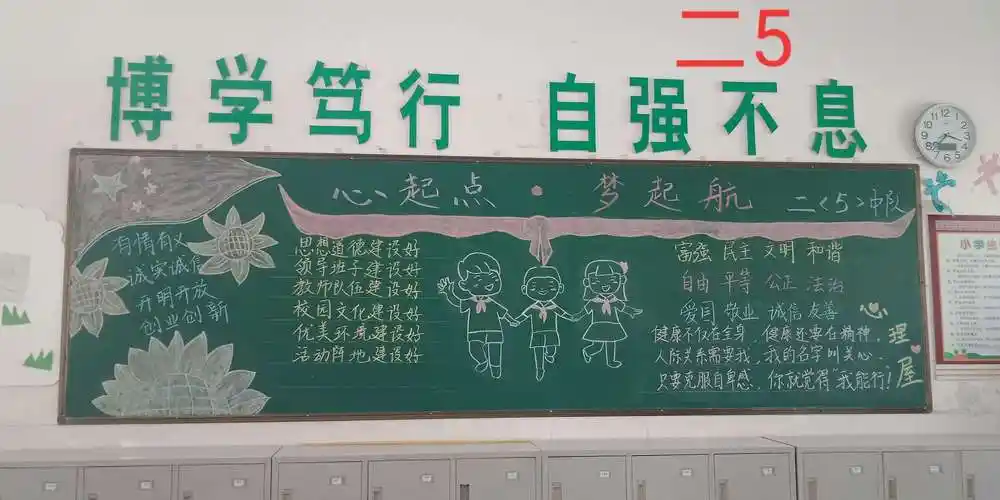 二5
博学笃行 自强不息
心起点·梦起航 二<5>中队
有情有义
诚实诚信
开明开放
创业创新
思想道德建设好
领导班子建设好
教师队伍建设好
校园文化建设好
优美环境建设好
活动阵地建设好
富强 民主 文明 和谐
自由 平等 公正 法治
爱国 敬业 诚信 友善
健康不仅在全身,健康还要在精神,
人际关系需要我,我的名字叫关心,
只要克服自卑感,你就觉得"我能行!
心理屋
小学生